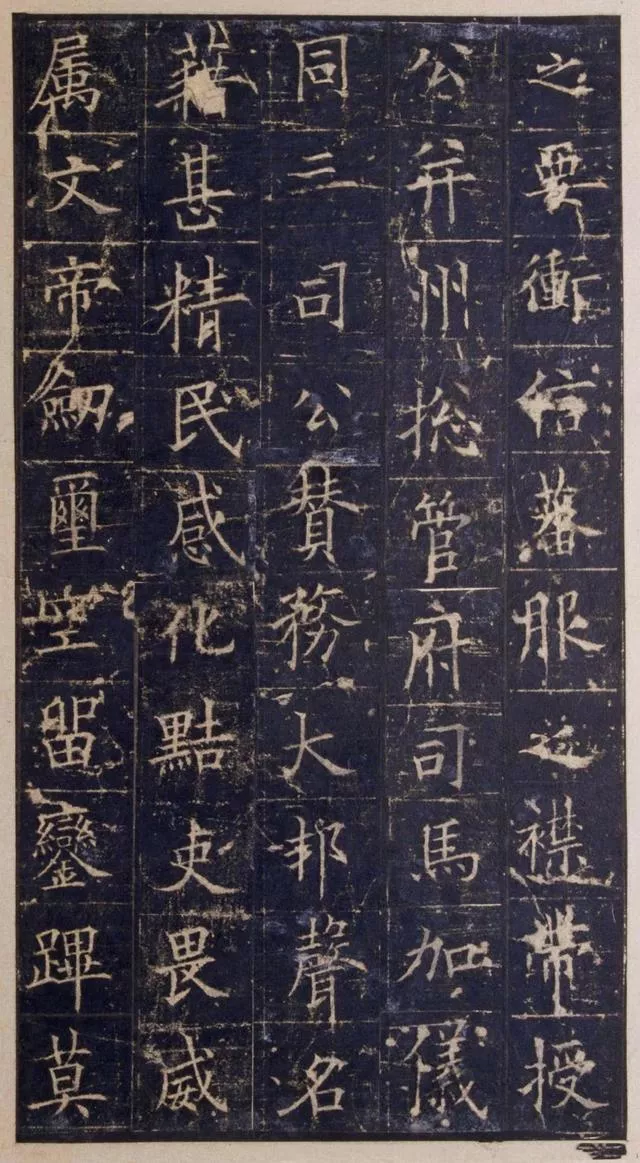 之要衝信蕃服之襟帶授
公并州摠管府司馬加儀
同三司公賛務大邦聲名
藉甚精民感化黠吏畏威
属文帝劒璽空留鑾蹕莫